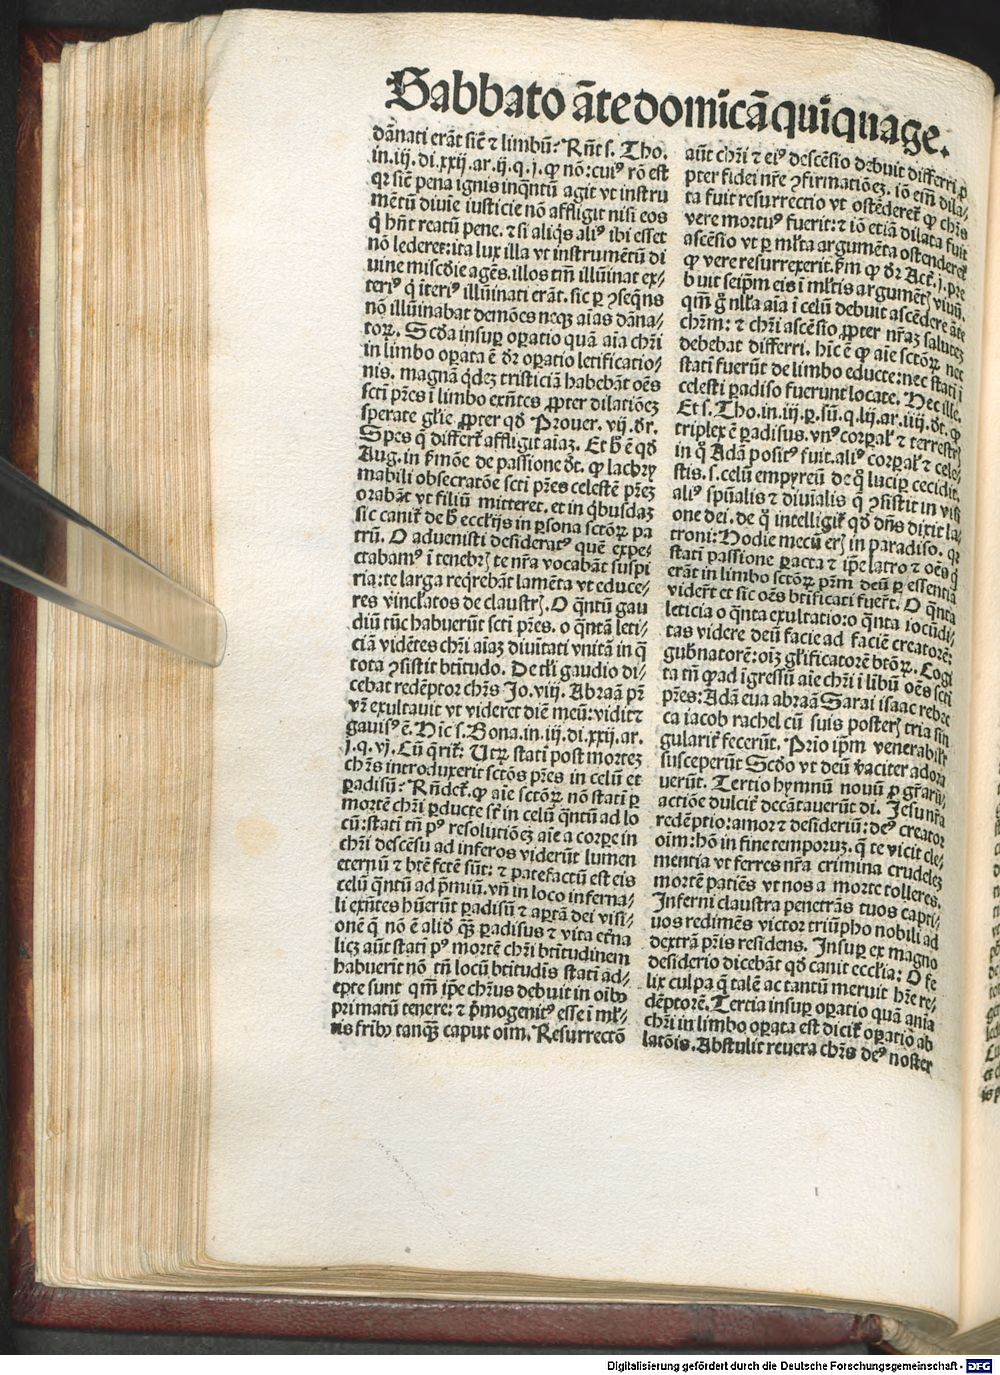 Sabbato āte domīcā quīquage.
dānati erāt sic̄ ⁊ limbū? Rn̄t s. Tho.
in.iij.di.xxij.ar.ij.q.j.ꝙ nō: cuiꝰ rō est
qꝛ sic̄ pena ignis inqntū agit vt instru
mētū diuīe iusticie nō affligit nisi eos
q̇ hn̄t reatū pene. ⁊ si aliq̇s aliꝰ ibi esset
nō lederet: ita lux illa vt instrumētū di
uine misc̄die agēs. illos tm̄ illūinat ex⸗
teriꝰ q̇ īteriꝰ illūinati erāt. sic ꝑ ꝯseq̄ns
nō illūinabat demōes neqꝫ aīas dāna⸗
toꝝ. Scd̄a insuꝑ oꝑatio quā aīa chr̄i
in limbo oꝑata ē dr̄ oꝑatio letificatio⸗
nis. magnā q̇deꝫ tristiciā habebāt oēs
sct̄i pr̄es ī limbo exn̄tes ꝓpter dilatiōeꝫ
sperate gl̄ie ꝓpter qd̄ Prouer. vij. dr̄.
Spes q̄ differt᷑ affligit aīaꝫ. Et h̄ ē qd̄
Aug. in ẜmōe de passione dt̄. ꝙ lachry
mabili obsecratōe sct̄i pr̄es celestē pr̄eꝫ
orabāt vt filiū mitteret. et in q̇busdaꝫ
sic canit᷑ de h̄ eccl̄ijs in ꝑsona sctōꝝ pa
trū. O aduenisti desideratꝰ quē expe⸗
ctabamꝰ ī tenebrꝭ te nr̄a vocabāt suspi
ria: te larga reqrebāt lamēta vt educe⸗
res vincl̄atos de claustrꝭ. O q̄ntū gau
diū tūc habuerūt sct̄i pr̄es. o q̄ntā leti⸗
ciā vidētes chr̄i aīaꝫ diuītati vnitā in q̄
tota ꝯsistit btītudo. De tl̄i gaudio di⸗
cebat redēptor chr̄s Jo. viij. Abraā pr̄
vr̄ exultauit vt videret diē meū: vidit ⁊
gauisꝰ ē. Hīc s. Bona. in.iij.di.xxij.ar.
j.q.vj. Cū q̇rit᷑: Utꝝ stati post morteꝫ
chr̄s introduxerit sctōs pr̄es in celū et
ꝑadisū? Rn̄det᷑. ꝙ aīe sctōꝝ nō statī ꝑ
mortē chr̄i ꝑducte st̄ in celū q̄ntū ad lo
cū: statī tn̄ pꝰ resolutiōeꝫ aīe a corꝑe in
chr̄i descēsu ad inferos viderūt lumen
eternū ⁊ btē fctē sūt: ⁊ patefactū est eis
celū q̄ntū ad p̄miū. vn̄ in loco inferna⸗
li exn̄tes hūerūt ꝑadisū ⁊ aꝑtā dei visi⸗
onē q̄ nō ē aliđ q̄ꝫ ꝑadisus ⁊ vita et̄na
licꝫ aūt statī pꝰ mortē chr̄i btītudinem
habuerīt nō tn̄ locū btitudīs statī ad⸗
epte sunt qm̄ ip̄e chr̄us debuit in oībꝫ
primatū tenere: ⁊ p̄mogenitꝰ esse ī ml̄⸗
tis fr̄ibꝫ tanqꝫ caput oīm. Resurrectō
aūt chr̄i ⁊ eiꝰ descēsio debuit differri ꝓ
pter fidei nr̄e ꝯfirmatiōeꝫ. iō em̄ dila⸗
ta fuit resurrectio vt ostēderet᷑ ꝙ chr̄s
vere mortuꝰ fuerit: ⁊ iō etiā dilata fuit
ascēsio vt ꝑ ml̄ta argumēta ostenderet᷑
ꝙ vere resurrexerit. ẜm ꝙ dr̄ Act̄. j. pre
buit seip̄m eis ī ml̄tis argumētꝭ viuū.
qm̄ g̊ nl̄la aīa ī celū debuit ascēdere āte
chr̄m: ⁊ chr̄i ascēsio ꝓpter nr̄aꝫ saluteꝫ
debebat differri. hīc ē ꝙ aīe sctōꝝ nec
statī fuerūt de limbo educte: nec statī ī
celesti ꝑadiso fuerunt locate. Hec ille.
Et s. Tho. in.iij.ꝑ.sū.q.lij.ar.iiij.dt̄. ꝙ
triplex ē ꝑadisus. vnꝰ corꝑal᷑ ⁊ terrestrꝭ
in q̊ Adā positꝰ fuit. aliꝰ corꝑal᷑ ⁊ cele⸗
stis. s. celū empyreū de q̊ lucip̄ cecidit.
aliꝰ spūalis ⁊ diuīalis q̄ ꝯsistit in visi
one dei. de q̊ intelligit᷑ qd̄ dn̄s dixit la⸗
troni: Hodie mecū erꝭ in paradiso. qꝛ
statī passione ꝑacta ⁊ ip̄e latro ⁊ oēs q̇
erāt in limbo sctōꝝ pr̄m deū ꝑ essentiā
viderūt et sic oēs btīficati fuer̄t. O q̄nta
leticia o q̄nta exultatio: o q̄nta iocūdi⸗
tas videre deū facie ad faciē creatorē:
gub̄natorē: oīꝫ gl̄ificatorē btōꝝ. Cogi
ta tn̄ ꝙ ad īgressū aīe chr̄i ī līb̄ū oēs sct̄i
pr̄es: Adā eua abraā Sarai isaac rebec
ca iacob rachel cū suis posterꝭ tria sin
gularit᷑ fecerūt. Prīo ip̄m venerabilr̄
susceperūt Scd̄o vt deū v̄aciter adora
uerūt. Tertio hymnū nouū ꝓ gr̄arū
actiōe dulcit᷑ decātauerūt di. Jesu nr̄a
redēptio: amor ⁊ desideriū: deꝰ creator
oīm: hō in fine temporuꝫ. q̄ te vicit cle⸗
mentia vt ferres nr̄a crimina crudeleꝫ
mortē patiēs vt nos a morte tolleres.
Inferni claustra penetrās tuos capti⸗
uos redimēs victor triūpho nobili ad
dextrā pr̄is residens. Insuꝑ ex magno
desiderio dicebāt qd̄ canit eccl̄ia: O fe
lix culpa q̄ talē ac tantū meruit hr̄e re⸗
dēptorē. Tertia insuꝑ oꝑatio quā anīa
chr̄i in limbo oꝑata est dicit᷑ oꝑatio ab
latōis. Abstulit reuera chr̄s deꝰ noster
Digitalisierung gefördert durch die Deutsche Forschungsgemeinschaft - DFG